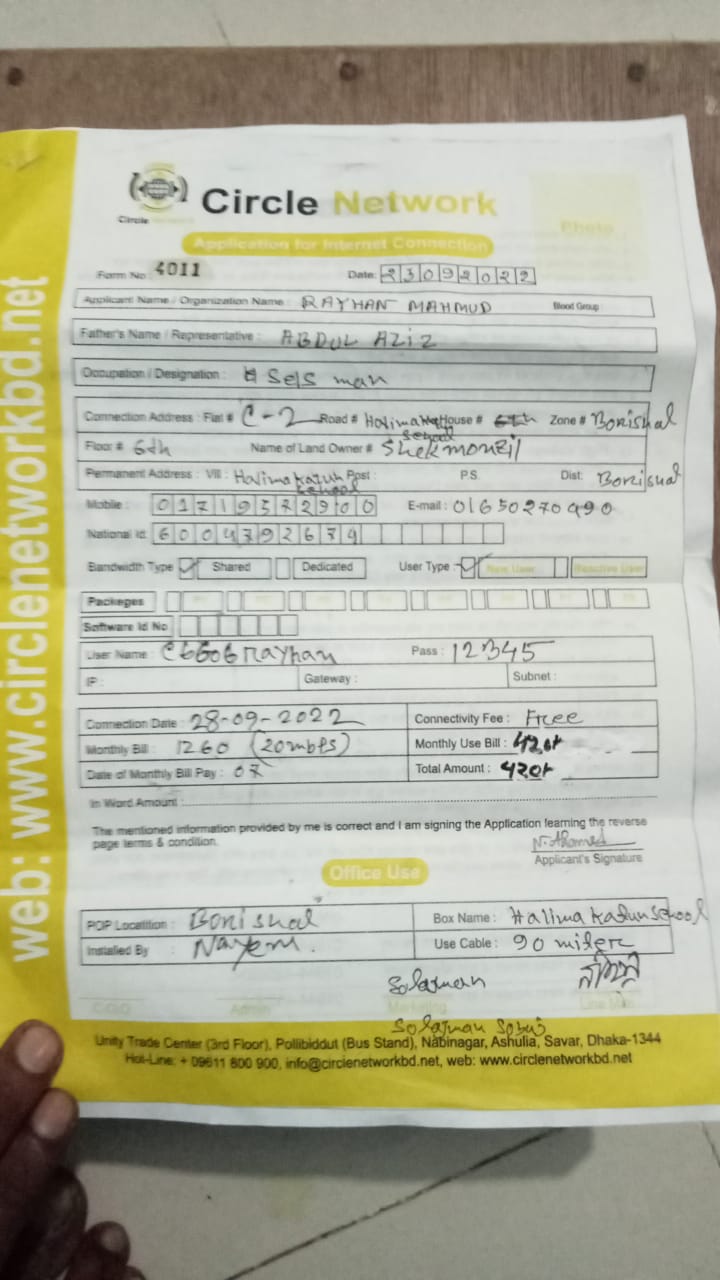 Circle Network
Circle
Application for Internet Connection
Photo
Form No : 4011 Date: 23092022
Applicant Name / Organization Name : RAYHAN MAHMUD Blood Group
Father's Name / Representative : ABDUL AZiZ
Occupation / Designation : Sels man
Connection Address : Flat # C-2 Road # Halima House # 6th Zone # Borishal
school
Floor # 6th Name of Land Owner # Shek monzil
Permanent Address : Vill : Halima Katun Post : P.S. Dist: Borishal
school
Mobile : E-mail : 01650270490
National Id: 6004792674
Bandwidth Type Shared Dedicated User Type : New User Reactive User
Packeges
Software Id No
User Name : Rayhan Pass : 12345
IP : Gateway : Subnet :
Connection Date : 28-09-2022 Connectivity Fee : Free
Monthly Bill : 1260 (20mbps) Monthly Use Bill :
Date of Monthly Bill Pay : 07 Total Amount :
In Word Amount :
The mentioned information provided by me is correct and I am signing the Application learning the reverse
page terms & condition.
Applicant's Signature
Office Use
POP Locatition : Borishal Box Name : Halima Katun School
Installed By : Nayem. Use Cable : 90 miter
Solaman
C.O.O Admin Marketing Line Man
Solaman
Unity Trade Center (3rd Floor), Pollibiddut (Bus Stand), Nabinagar, Ashulia, Savar, Dhaka-1344
Hot-Line: + 09611 800 900, info@circlenetworkbd.net, web: www.circlenetworkbd.net
web: www.circlenetworkbd.net